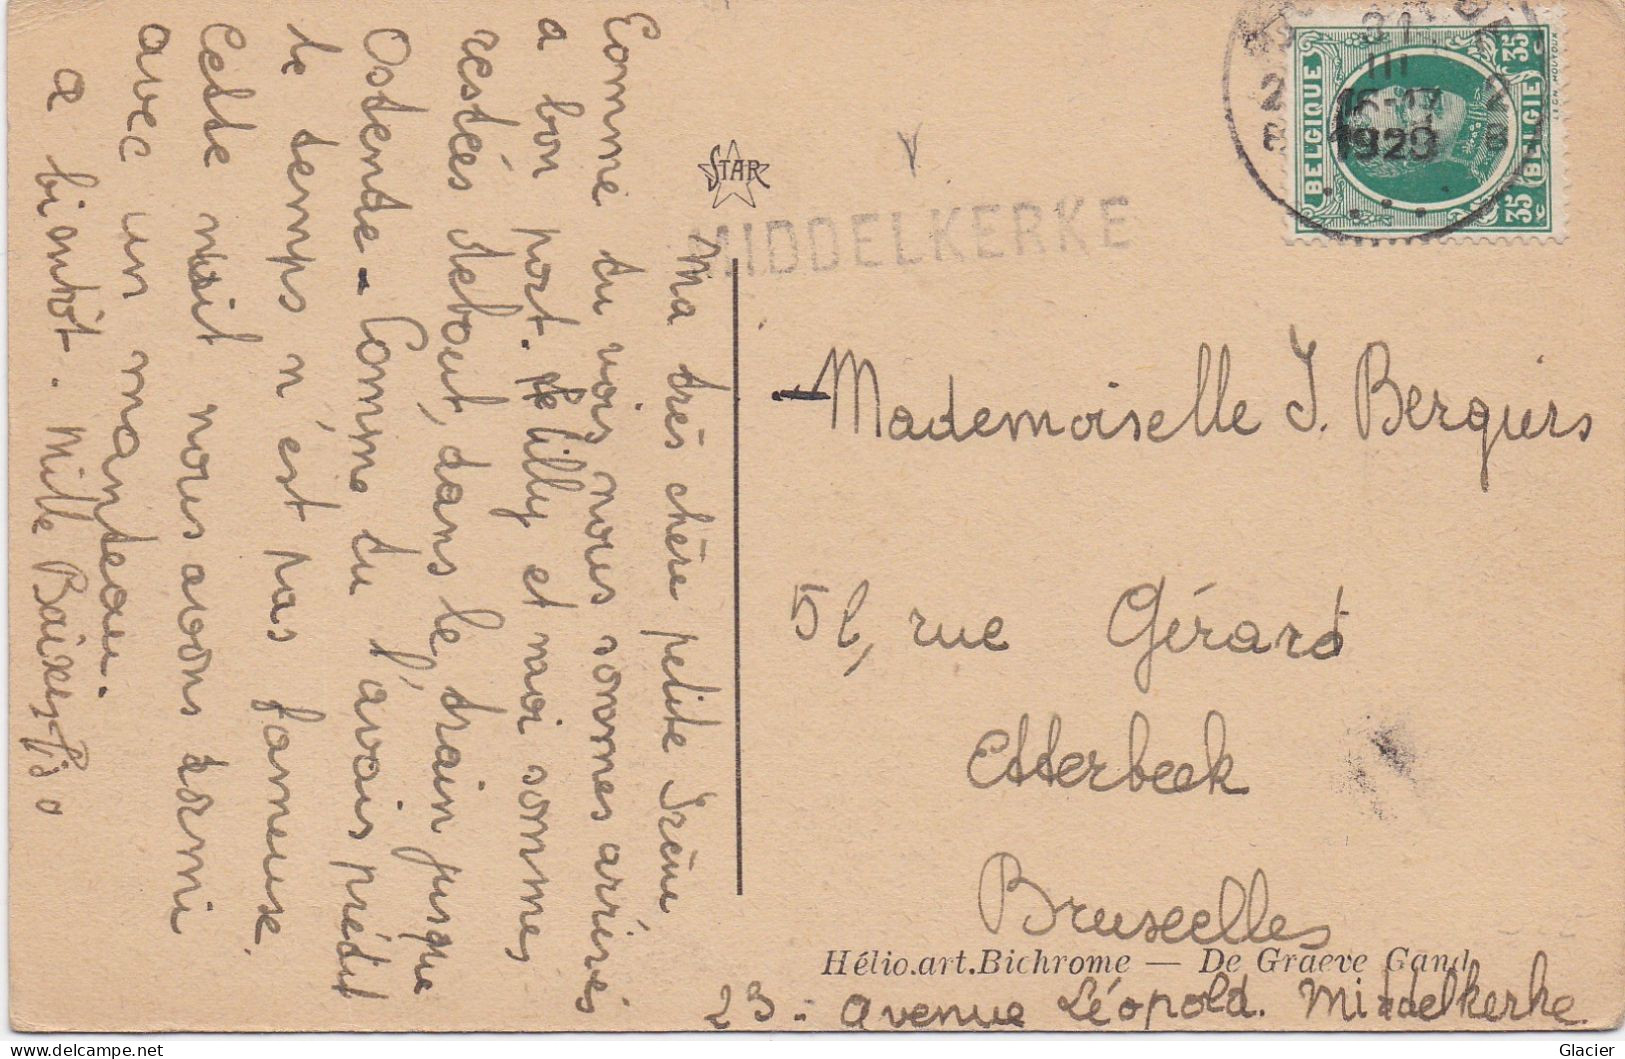 Ma très chère petite Irène,
Comme tu vois nous sommes arrivés
a bon port. Lilly et moi sommes
restées debout, dans le train jusque
Ostende - Comme tu l'avais prédit
le temps n'est pas fameux.
Cette nuit nous avons dormi
avec un manteau.
a bientôt. Mille Baisers
STAR
MIDDELKERKE
31
III
16-17
1929
2 2
B B
35 35
BELGIQUE
BELGIË
35 c
Mademoiselle I. Berquirs
51, rue Gérard
Etterbeek
Bruxelles
Hélio.art.Bichrome — De Graeve Gand
23 - avenue Léopold. Middelkerke.
Glacier